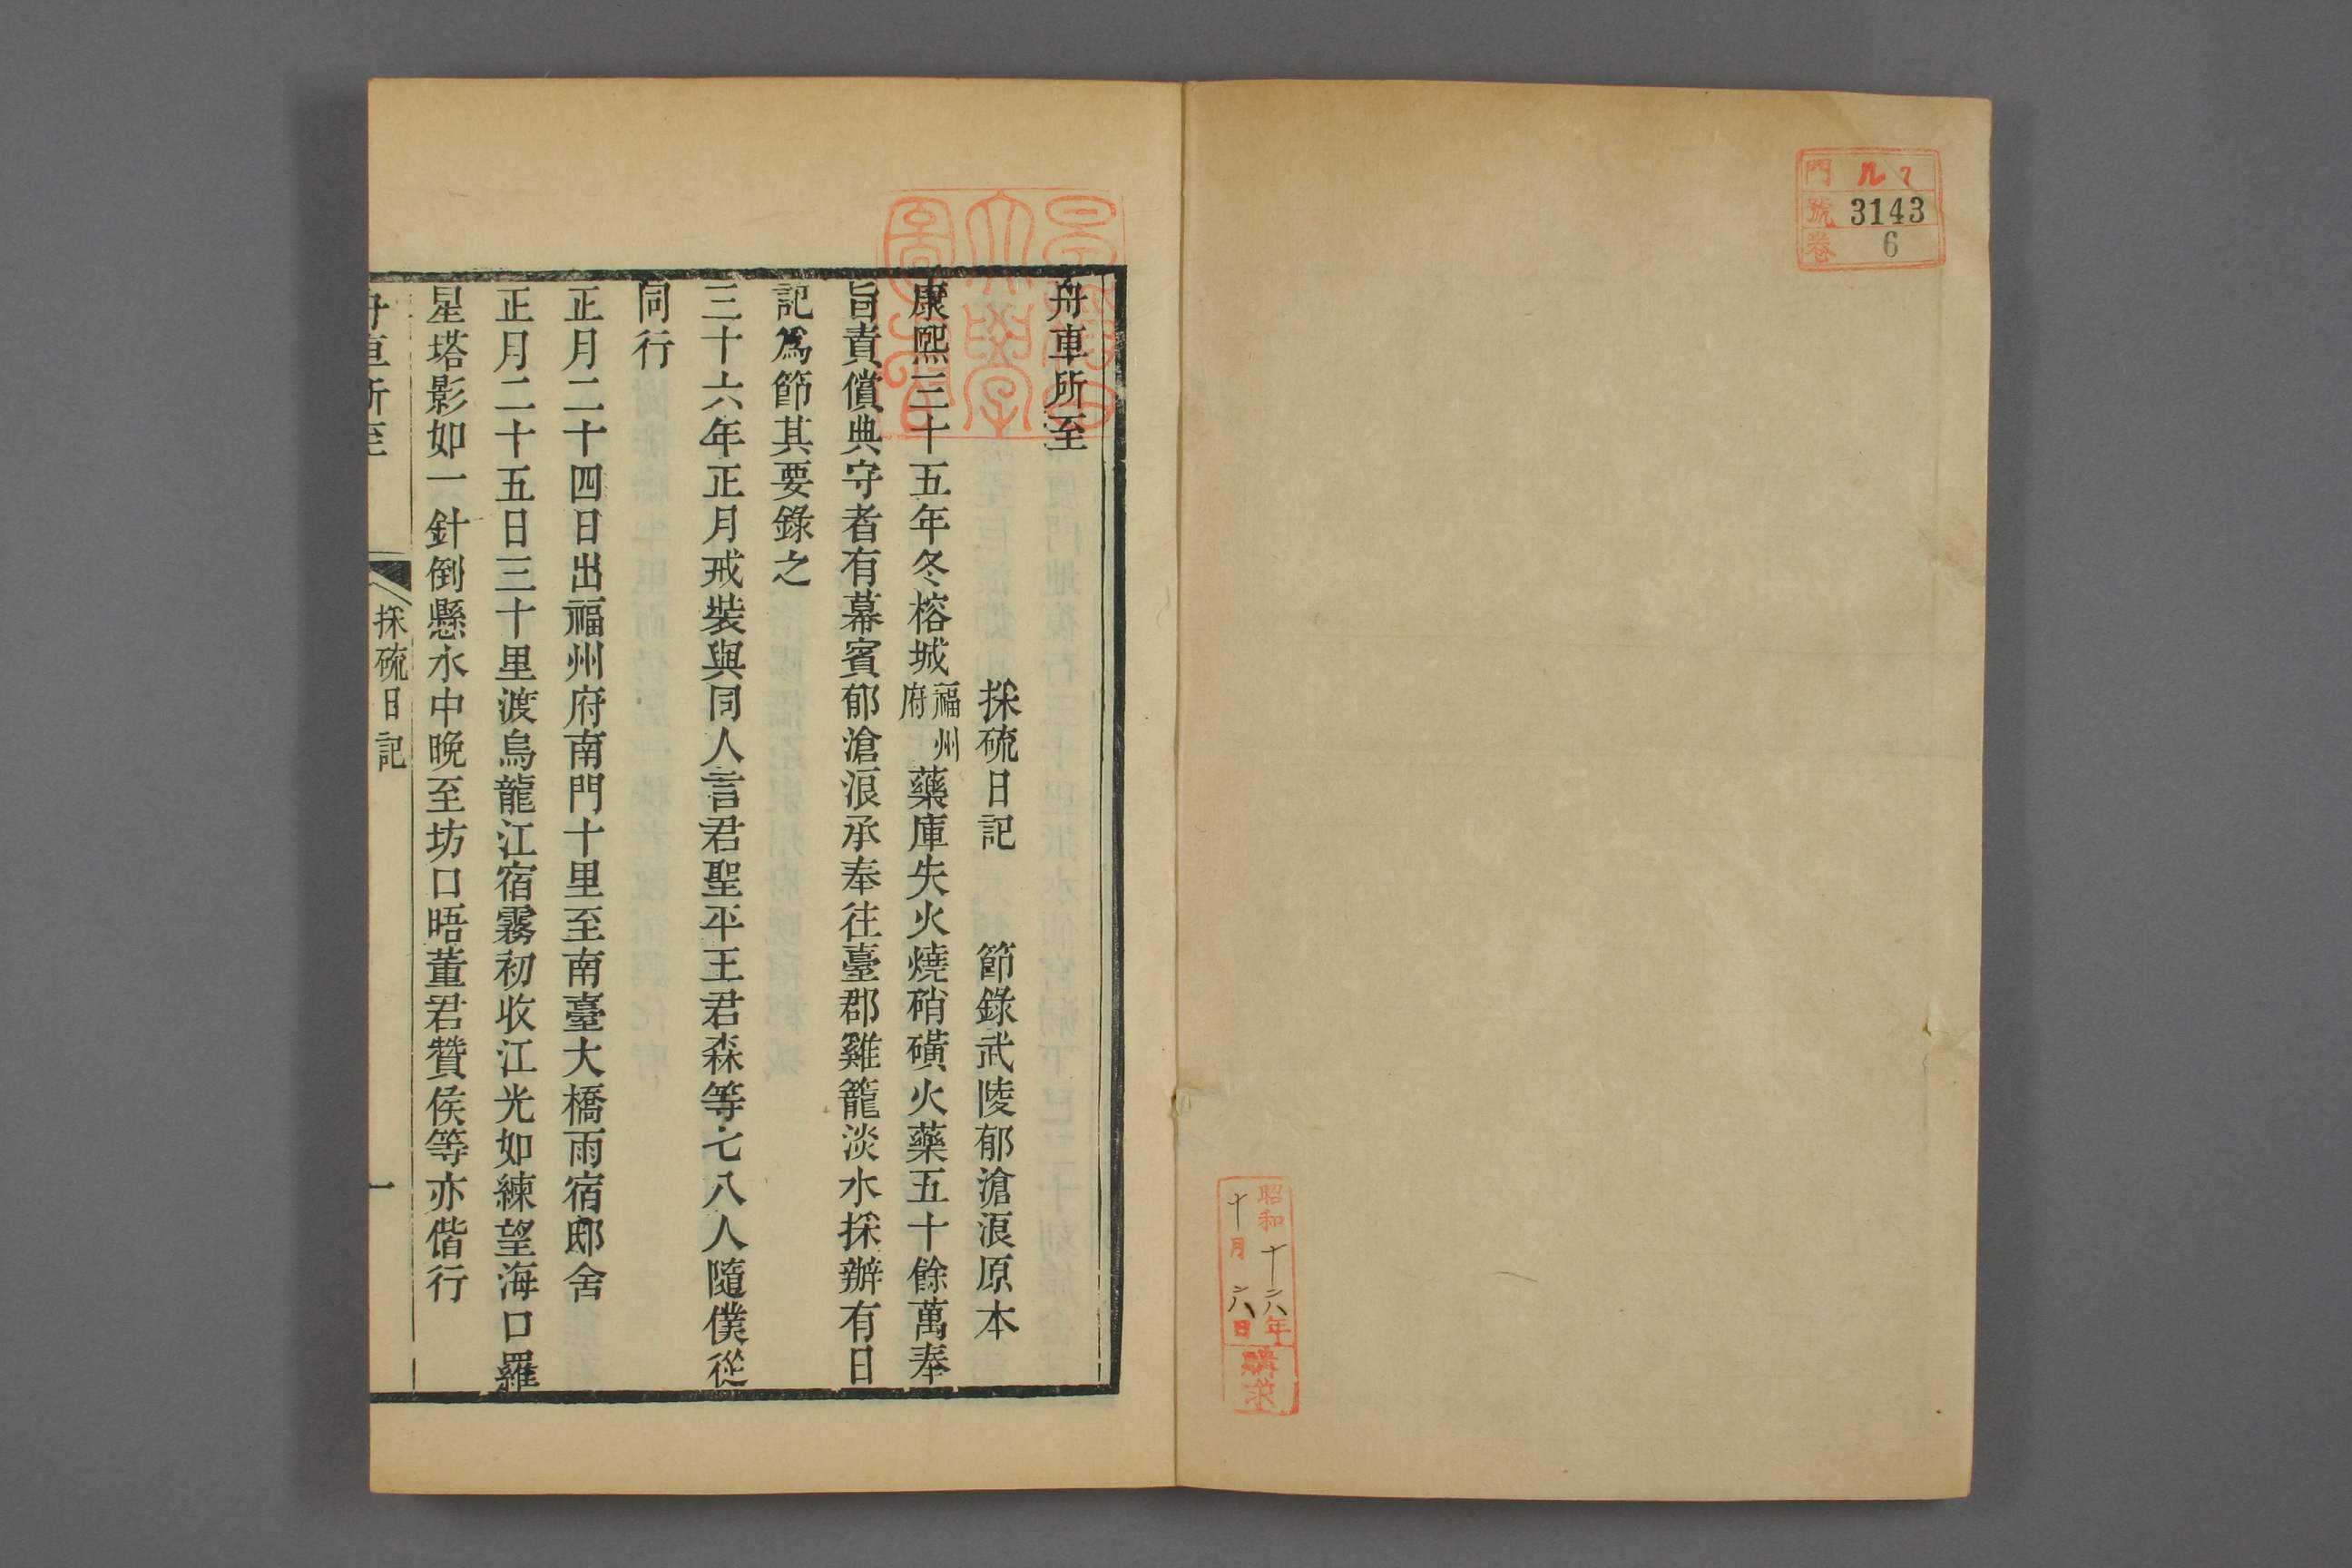 門 ル 7
號 3143
卷 6
昭和十六年
十月六日
購求
舟車所至
採硫日記 節錄武陵郁滄浪原本
康熙三十五年冬榕城福州府藥庫失火燒硝磺火藥五十餘萬奉
旨責償典守者有幕賓郁滄浪承奉往臺郡雞籠淡水採辦有日
記爲節其要錄之
三十六年正月戒裝與同人言君聖平王君森等七八人隨僕從
同行
正月二十四日出福州府南門十里至南臺大橋雨宿邸舍
正月二十五日三十里渡烏龍江宿霧初收江光如練望海口羅
星塔影如一針倒懸水中晚至坊口晤董君贊侯等亦偕行
舟車所至 採硫日記 一